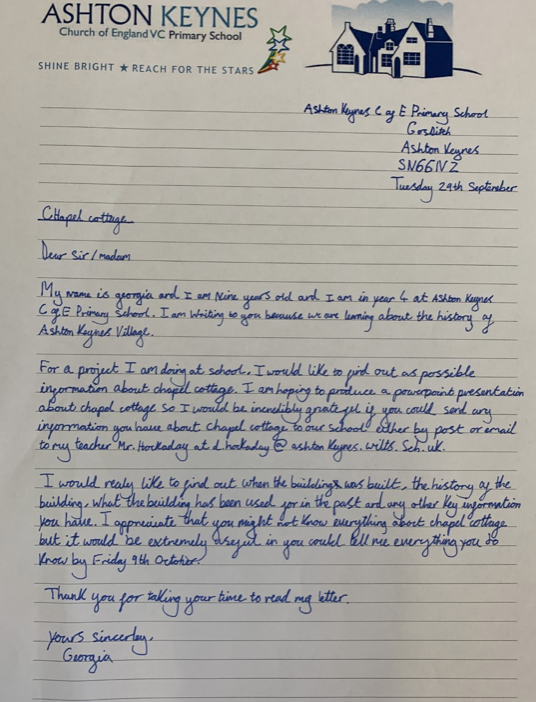 ASHTON KEYNES
Church of England VC Primary School
SHINE BRIGHT ★ REACH FOR THE STARS
Ashton Keynes C of E Primary School
Gosditch
Ashton Keynes
SN66NZ
Tuesday 29th September
Chapel cottage
Dear Sir/madam
My name is georgia and I am Nine years old and I am in year 4 at Ashton Keynes
C of E Primary School. I am Writing to you because we are learning about the history of
Ashton Keynes Village.
For a project I am doing at school, I would like to find out as possible
information about chapel cottage. I am hoping to produce a powerpoint presentation
about chapel cottage so I would be incredibly grateful if you could send any
information you have about Chapel cottage to our school either by post or email
to my teacher Mr. Hockaday at d.hockaday@ashton keynes.wilts.Sch.uk.
I would realy like to find out when the building was built, the history of the
building, what the building has been used for in the past and any other key information
you have. I appreciate that you might not know everything about chapel cottage
but it would be extremely useful in you could tell me everything you do
Know by Friday 9th October.
Thank you for taking your time to read my letter.
yours sincerley,
Georgia